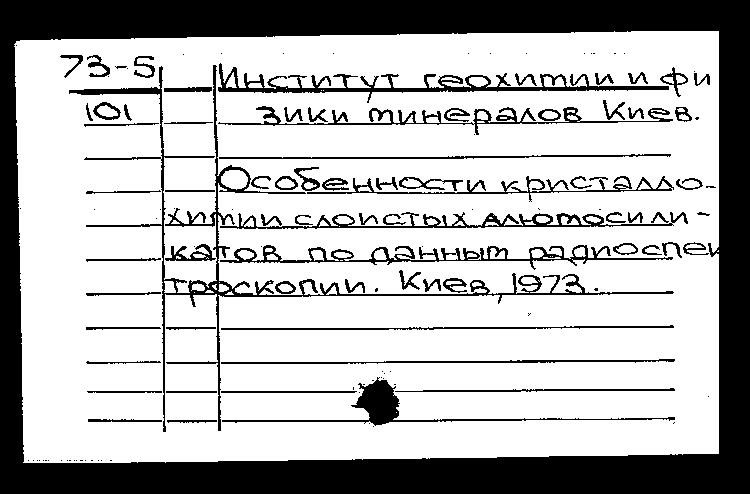 73-5 Институт геохимии и фи
101 зики минералов Киев.
Особенности кристалло-
химии слоистых алюмосили-
катов по данным радиоспек
троскопии. Киев, 1973.